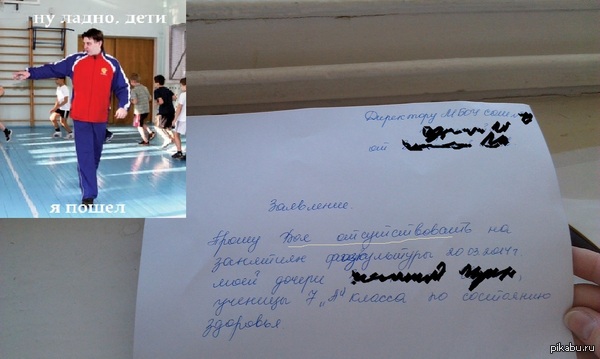 ну ладно, дети
я пошел
Директору МБОУ СОШ
от
Заявление.
Прошу Вас отсутствовать на
занятиях физкультуры 20.03.2014г
моей дочери
ученицы 7 „А" класса по состоянию
здоровья
pikabu.ru